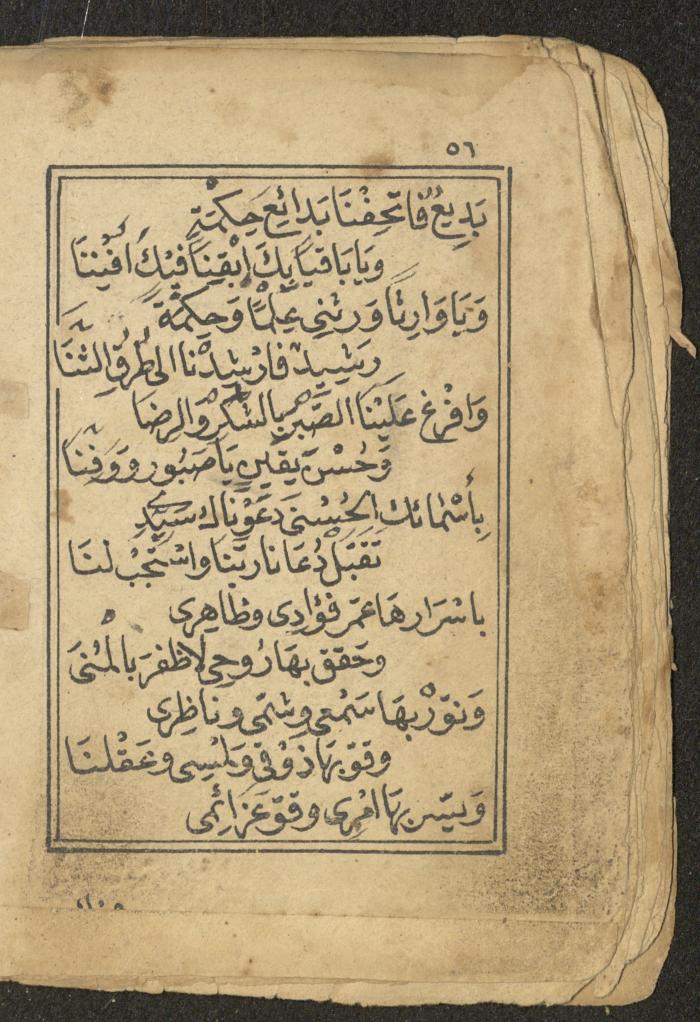 ٥٦
بَدِيعُ فَاتحِفْنَا بَدائِعَ حِكْمَةٍ
وَيَا بَاقيًا بِكَ ابْقِيَنا فيْكَ افْنِنَا
وَيَا وَارِثًا وَرثنِي عِلْمًا وَحِكمةً
رَشِيدٌ فارْشِدْنا الى طُرقِ الثنَا
وَافْرْغ عَلَيْنَا الصَّبرَ بالشكرِ والرِضَا
وَحُسْنَ يَقينٍ يَا صَبُور وَوَفِنَا
بِأَسْمائك الحُسْنى دَعَوْناك سَيّدِي
تَقَبّلْ دُعَانا رَبّنا واسْتَجْبْ لنَا
باسْرَارهَا عمر فؤادِى وظاهِرى
وحَقق بِهَا رُوحِى لاظفرَ بالْمُنىَ
وَنوّرْ بِهَا سَمْعى وشَمّى وناظِرِى
وقوّ بِهَا ذوْقى وَلمْسِى وعَقْلنَا
وَيسّر بِهَا امْرِى وقوّ عَزائِمى